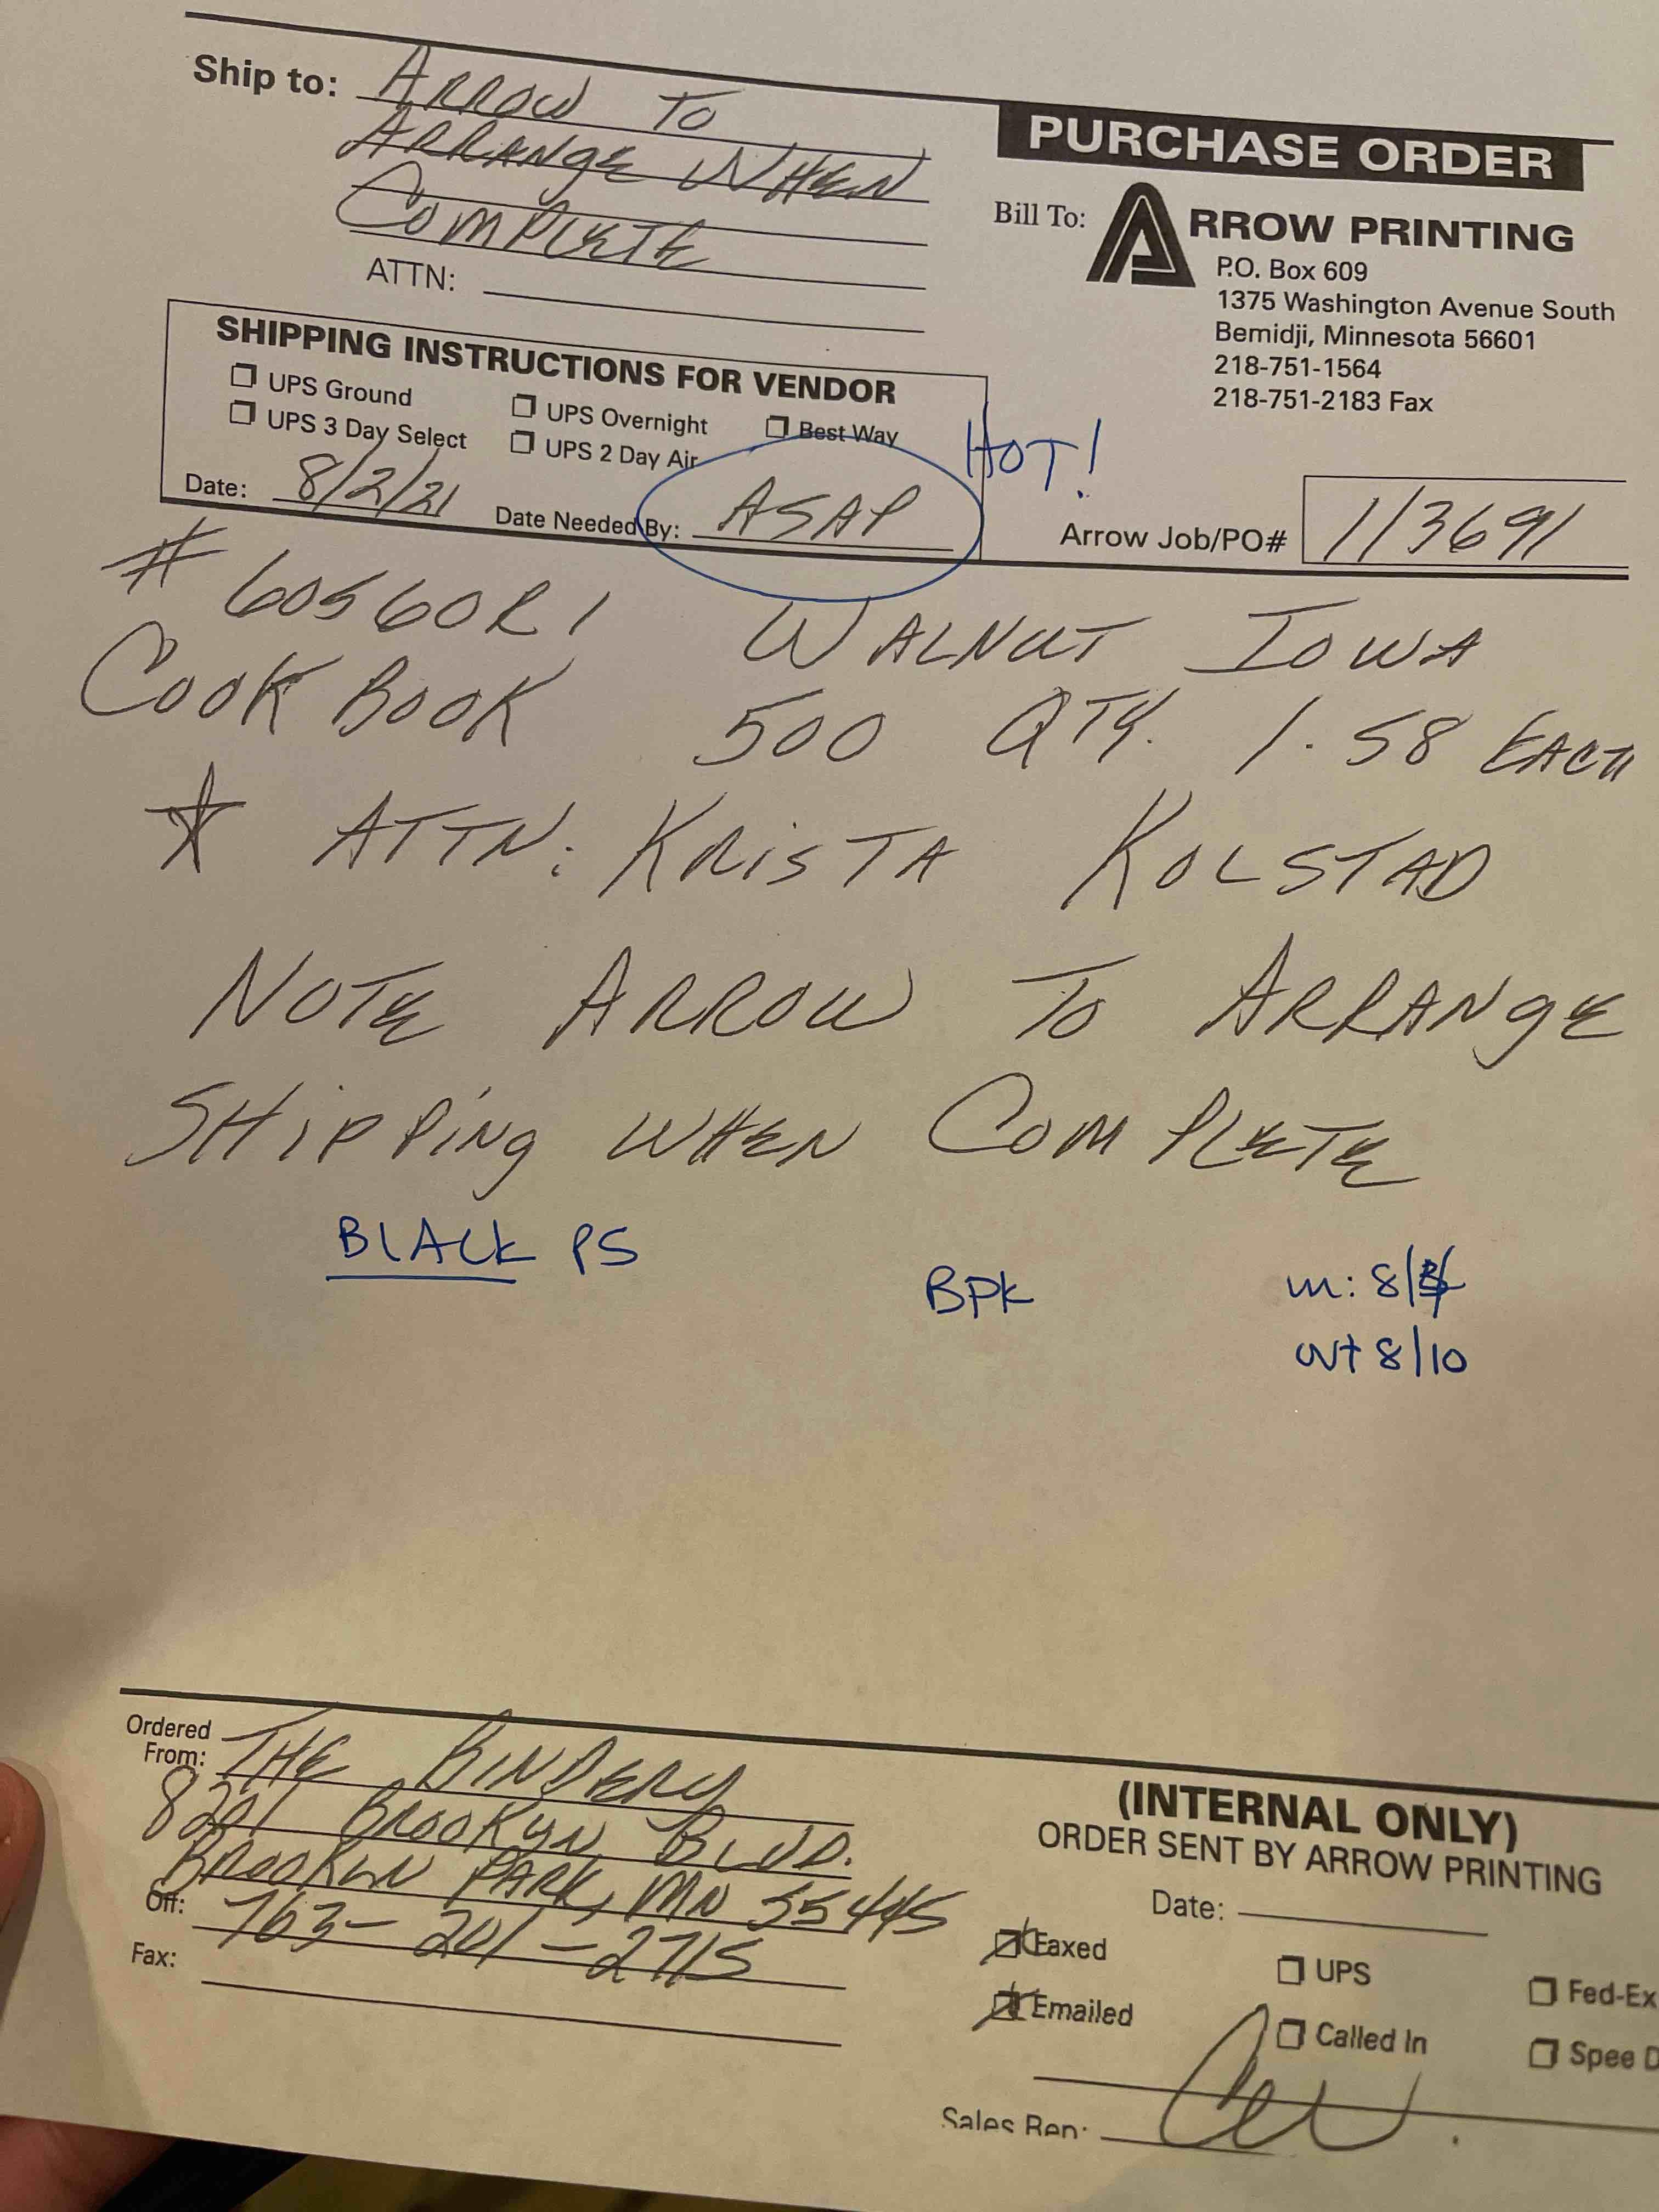 Ship to: ARROW TO
ARRANGE WHEN
COMPLETE
ATTN:
PURCHASE ORDER
Bill To: ARROW PRINTING
P.O. Box 609
1375 Washington Avenue South
Bemidji, Minnesota 56601
218-751-1564
218-751-2183 Fax
SHIPPING INSTRUCTIONS FOR VENDOR
UPS Ground UPS Overnight Best Way
UPS 3 Day Select UPS 2 Day Air
Date: 8/2/21 Date Needed By: ASAP
HOT!
Arrow Job/PO# 113691
# 60560R1 WALNUT IOWA
COOK BOOK 500 QTY. 1.58 EACH
* ATTN: KRISTA KOLSTAD
NOTE ARROW TO ARRANGE
SHIPPING WHEN COMPLETE
BLACK PS
BPK
in: 8/
out 8/10
Ordered
From: THE BINDERY
8201 BROOKLYN BLVD.
BROOKLYN PARK, MN 55445
Off: 763-201-2715
Fax:
(INTERNAL ONLY)
ORDER SENT BY ARROW PRINTING
Date:
Faxed UPS Fed-Ex
Emailed Called In Spee D
Sales Rep: